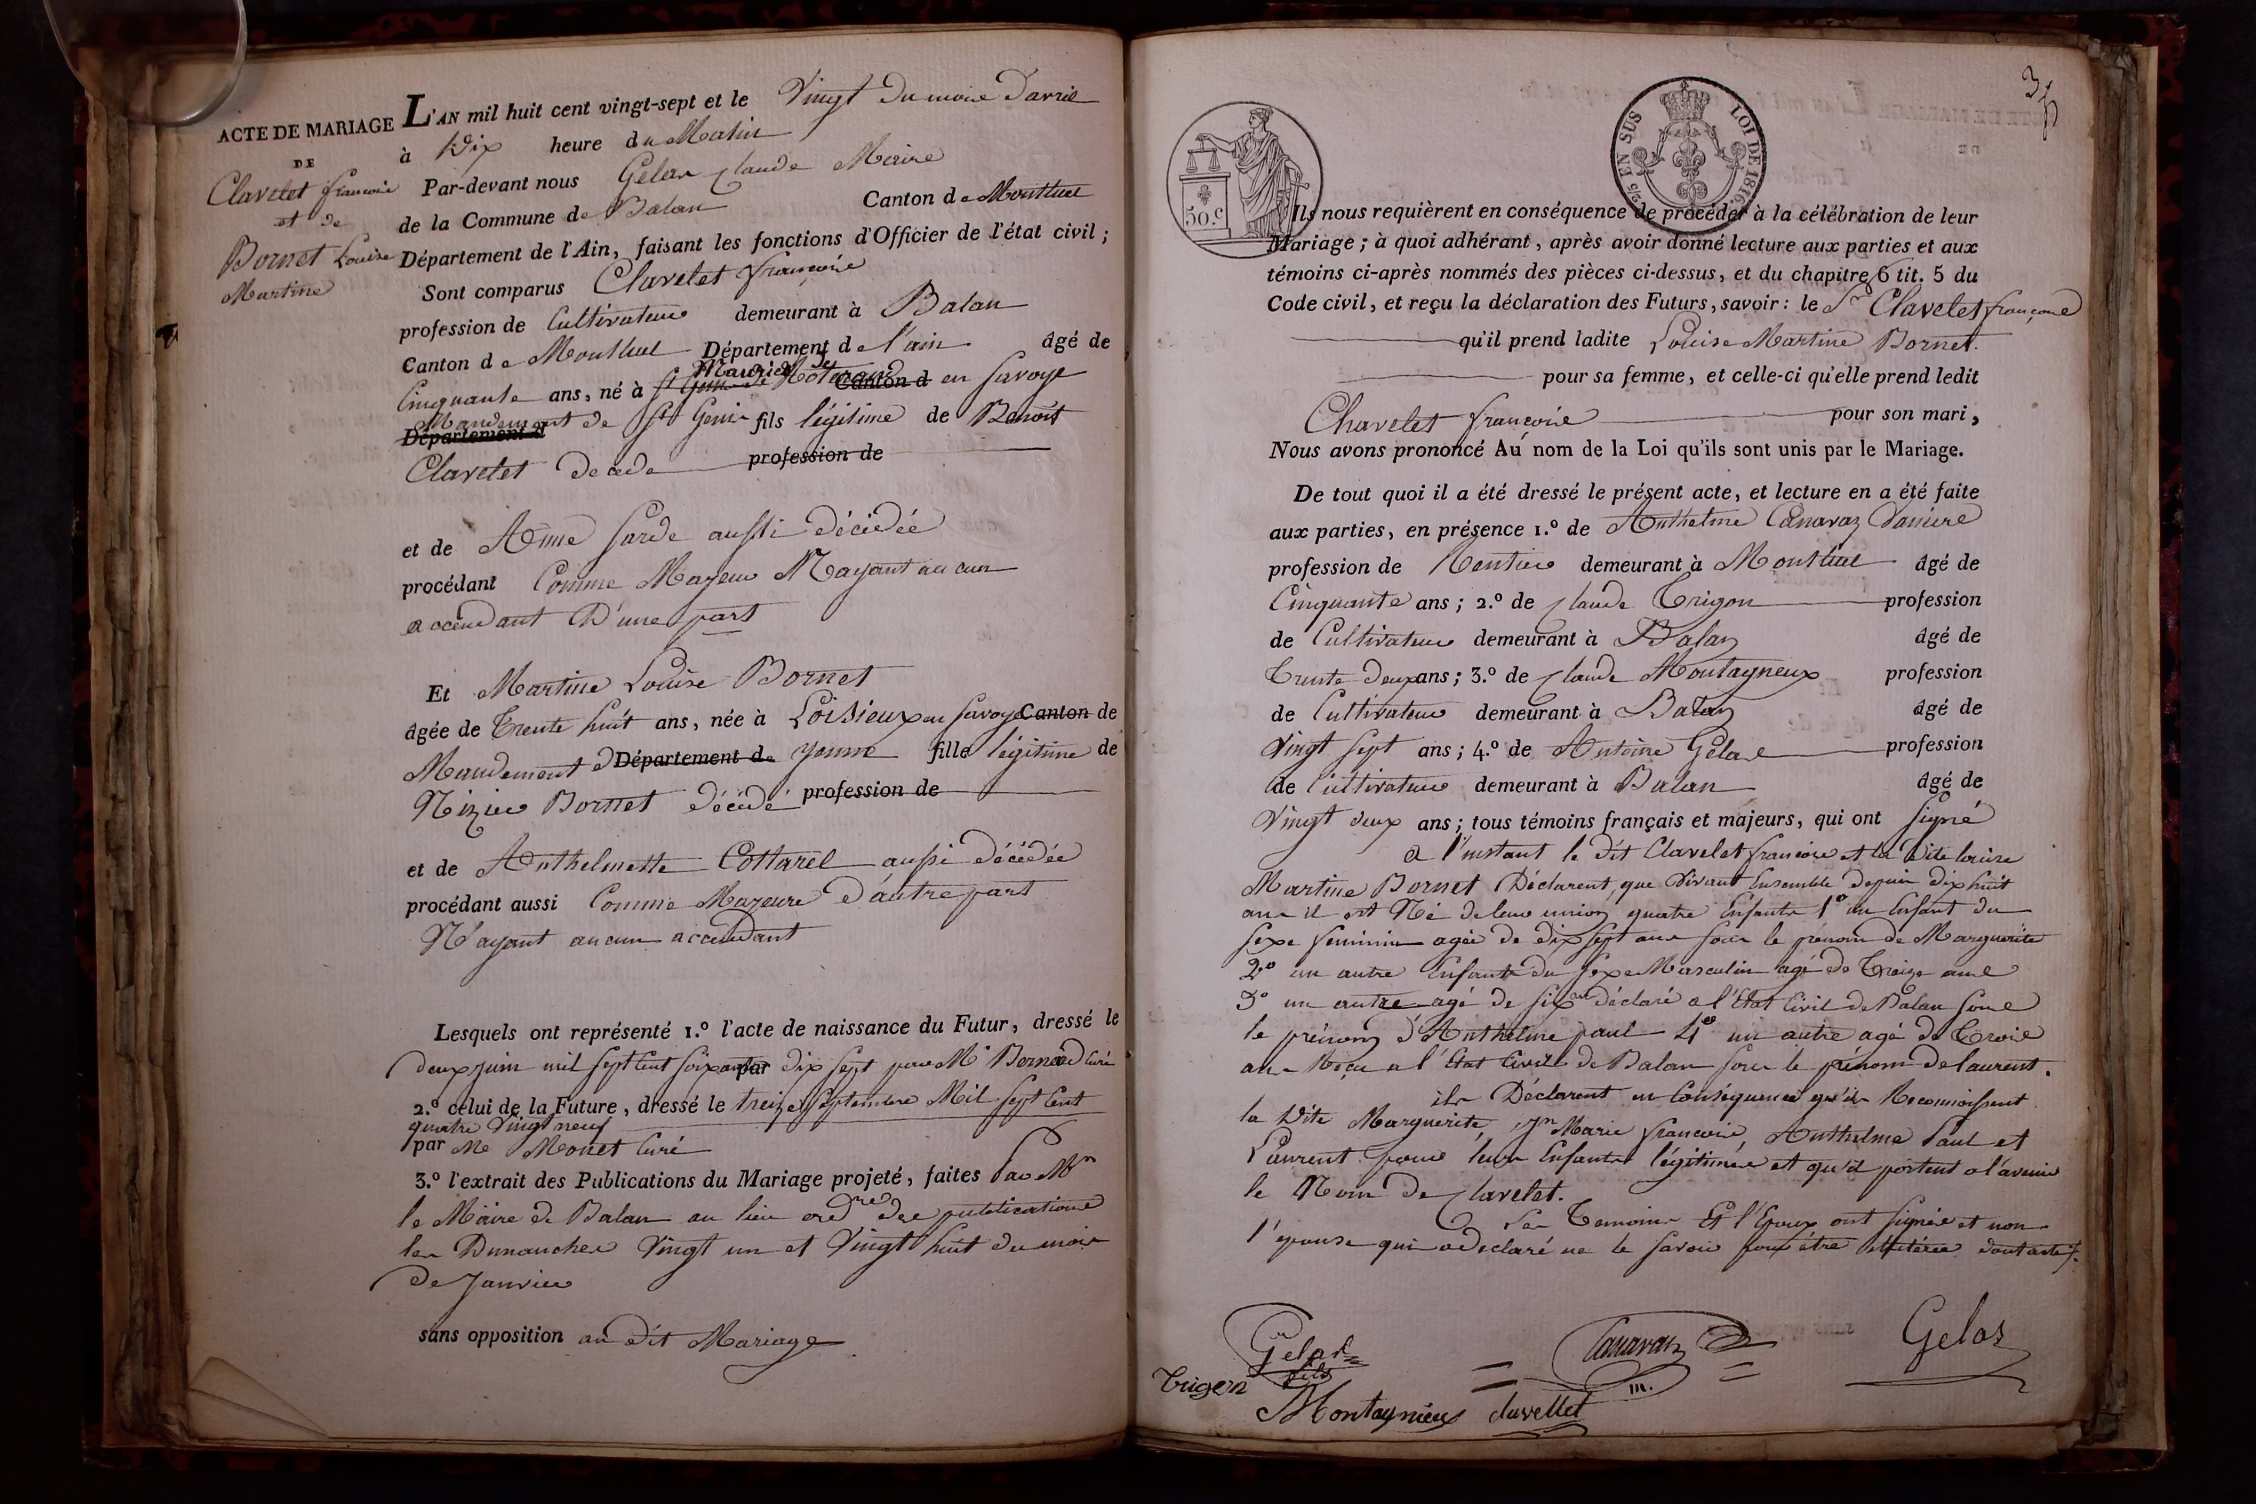 ACTE DE MARIAGE
DE
Clavelet françois
et de
Bornet Louise
Martine
L'AN mil huit cent vingt-sept et le Vingt du mois d'avril
à Dix heure du Matin
Par-devant nous Gelas Claude Maire
de la Commune de Balan Canton de Montluel
Département de l'Ain, faisant les fonctions d'Officier de l'état civil ;
Sont comparus Clavelet françois
profession de Cultivateur demeurant à Balan
Canton de Montluel Département de l'ain âgé de
Maurice de
Cinquante ans, né à St Rotherens Canton d en Savoye
Mandement de St Genix fils légitime de Benoît
Département d
Clavelet décédé profession de
et de Anne Sarde aussi décédée
procédant Comme Majeur N'ayant aucun
accendant D'une part
Et Martine Louise Bornet
âgée de Trente huit ans, née à Loisieux en Savoye Canton de
Mandement d Département de yenne fille légitime de
Nizier Bornet décédé profession de
et de Anthelmette Cottarel aussi décédée
procédant aussi Comme Majeure d'autre part
N'ayant aucun accendant
Lesquels ont représenté 1.º l'acte de naissance du Futur, dressé le
deux juin mil sept Cent soixante par dix sept par Mr Bornard Curé
2.º celui de la Future, dressé le treize Septembre Mil sept Cent
quatre Vingt neuf
par Me Monet Curé
3.º l'extrait des Publications du Mariage projeté, faites Par Mr
le Maire de Balan au lieu ordre des publications
les Dimanches Vingt un et Vingt huit du mois
de Janvier
sans opposition au dit Mariage
35
2/5 EN SUS LOI DE 1816.
50.c
Ils nous requièrent en conséquence de procéder à la célébration de leur
Mariage ; à quoi adhérant, après avoir donné lecture aux parties et aux
témoins ci-après nommés des pièces ci-dessus, et du chapitre 6 tit. 5 du
Code civil, et reçu la déclaration des Futurs, savoir : le Sr Clavelet françois
qu'il prend ladite Louise Martine Bornet.
pour sa femme, et celle-ci qu'elle prend ledit
Chavelet françois pour son mari,
Nous avons prononcé Au nom de la Loi qu'ils sont unis par le Mariage.
De tout quoi il a été dressé le présent acte, et lecture en a été faite
aux parties, en présence 1.º de Anthelme Canavaz
profession de Rentier demeurant à Montluel âgé de
Cinquante ans ; 2.º de Claude Trigon profession
de Cultivateur demeurant à Balan âgé de
Trente deux ans ; 3.º de Claude Montagneux profession
de Cultivateur demeurant à Balan âgé de
Vingt sept ans ; 4.º de Antoine Gelas profession
de Cultivateur demeurant à Balan âgé de
Vingt deux ans ; tous témoins français et majeurs, qui ont signé
a l'instant le dit Clavelet françois et la dite louise
Martine Bornet Déclarent, que Vivant Ensemble depuis dix huit
ans il est Né de leur union quatre Enfants 1º un Enfant du
sexe feminin agée de dix sept ans sous le prénom de Marguerite
2º un autre Enfant du sexe Masculin agé de Treize ans
3º un autre agé de six ans déclaré a l'Etat Civil de Balan sous
le prénom d'Anthelme paul 4º un autre agé de Trois
ans Reçu a l'Etat Civil de Balan sous le prénom de laurent.
ils Déclarent en Conséquence qu'ils Reconnoissent
la Dite Marguerite, Jn Marie francois, Anthelme Paul et
Laurent pour leurs Enfants légitimés et qu'il portent a l'avenir
le Nom de Clavelet.
Les Temoins Et l'Epoux ont signés et non
l'epouse qui a declaré ne le savoir pour être illitérée dont acte
Gelas
fils
Canavaz
Gelas
Trigon
Montagnieux clavellet